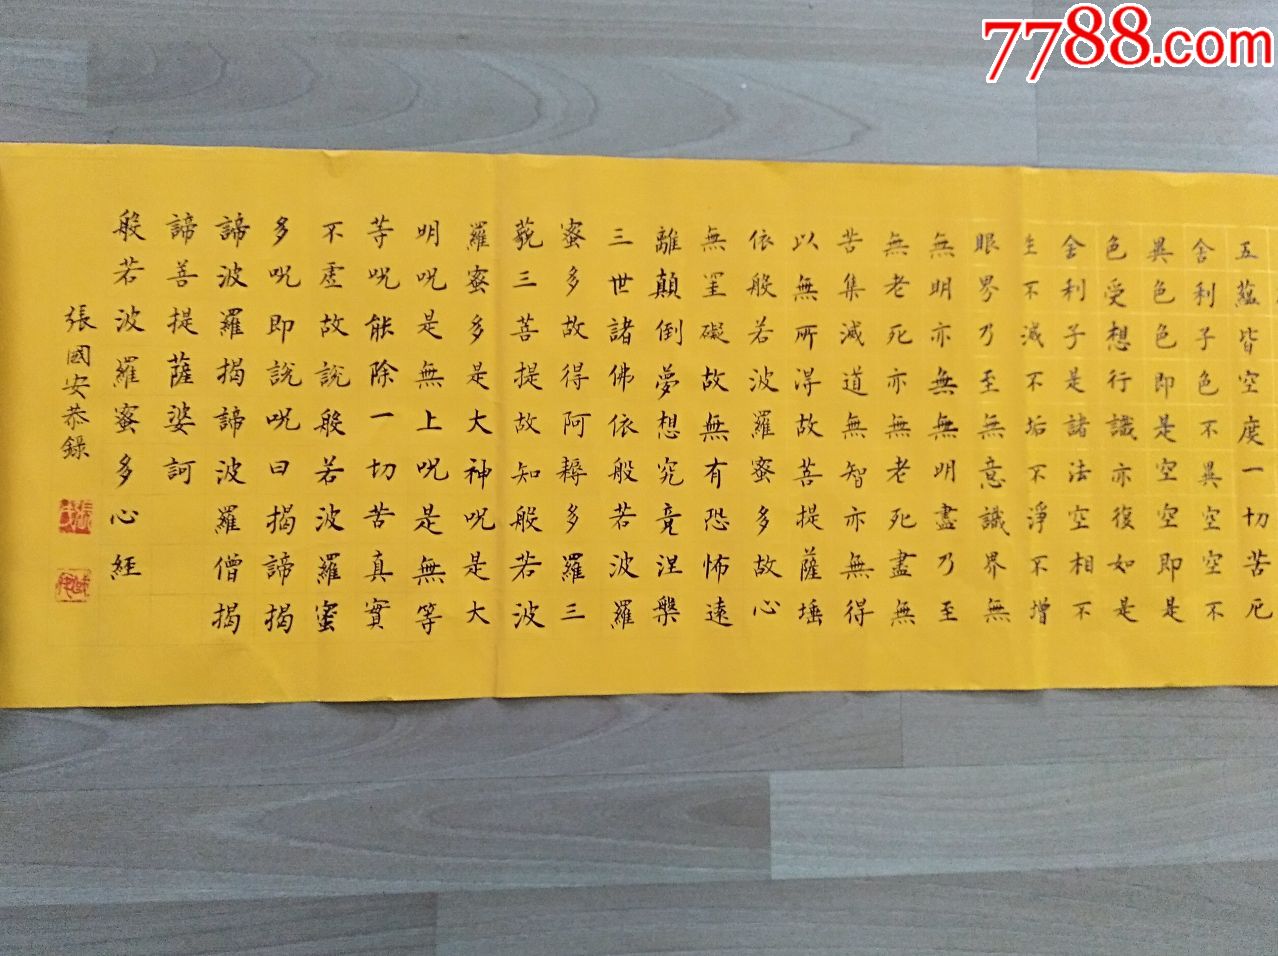 7788.com
五蘊皆空度一切苦厄
舍利子色不異空空不
異色色即是空空即是
色受想行識亦復如是
舍利子是諸法空相不
生不滅不垢不淨不增
眼界乃至無意識界無
無明亦無無明盡乃至
無老死亦無老死盡無
苦集滅道無智亦無得
以無所得故菩提薩埵
依般若波羅蜜多故心
無罣礙故無有恐怖遠
離顛倒夢想究竟涅槃
三世諸佛依般若波羅
蜜多故得阿耨多羅三
藐三菩提故知般若波
羅蜜多是大神呪是大
明呪是無上呪是無等
等呪能除一切苦真實
不虛故說般若波羅蜜
多呪即說呪曰揭諦揭
諦波羅揭諦波羅僧揭
諦善提薩婆訶
般若波羅蜜多心經
張國安恭錄